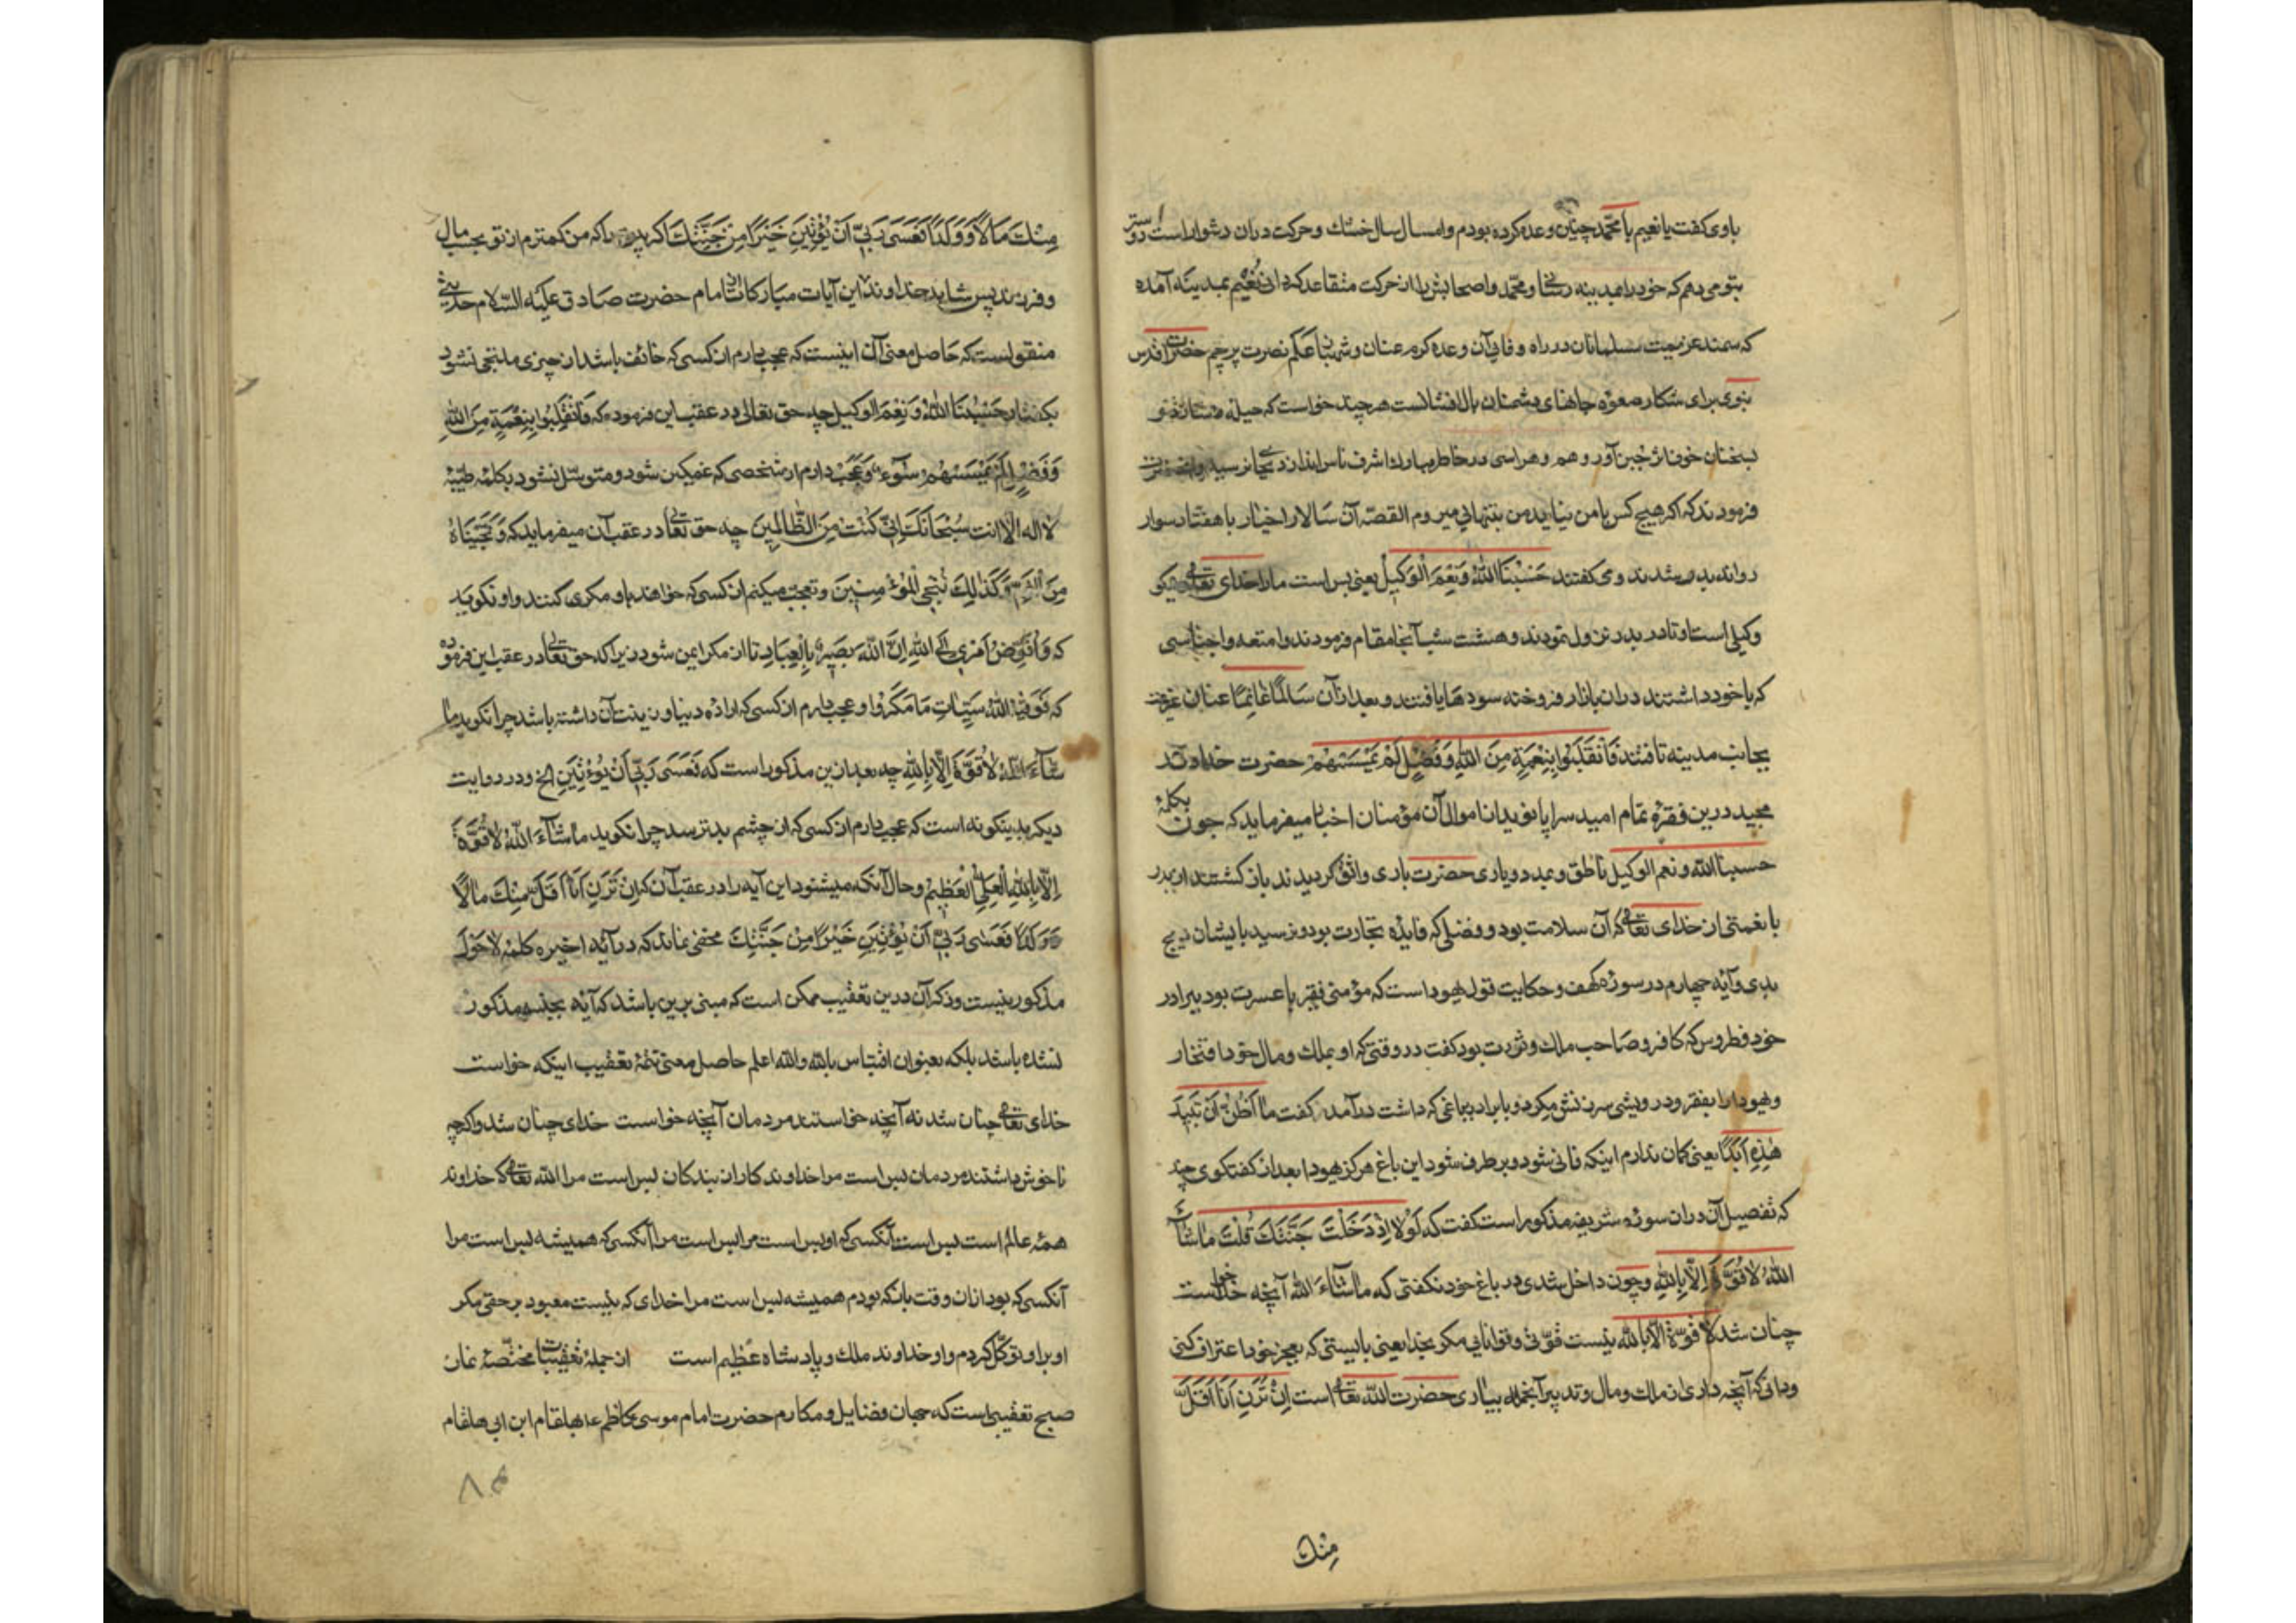 باوی کفت یا نعیم با محمّد چنین وعده کرده بودم و امسال سال خشک و حرکت دران دشوار است
بتو می دهم که خود را بمدینه رسانی و محمّد و اصحابش را از حرکت متقاعد کردانی نُعَیْم بمدینه آمده
که سمند عزیمت مسلمانان در راه وفای آن وعده کرم عنان و علم نصرت پرچم حضرت اقدس
نبوی برای شکار صعوه جانهای دشمنان بال افشانست هر چند خواست که
بسخنان خوف آور وهم و هراسی در خاطر مبارك اشرف ناس اندازد بجائی نرسید
فرمودند که اکر هیچ کس با من نیاید من بتنهائی میروم القصّه آن سالار اخیار با هفتاد سوار
روانه بدر شدند و می کفتند حَسْبُنَا اللّٰهُ وَنِعْمَ الْوَکِیلُ یعنی بس است ما را خدای تعالی و نیکو
وکیلی است او تا در بدر نزول نمودند و هشت شب آنجا مقام فرمودند و امتعه و اجناسی
که با خود داشتند دران بازار فروخته سودها یافتند و بعد ازان سَالِمًا غَانِمًا عنان عزیمت
بجانب مدینه تافتند فَانْقَلَبُوا بِنِعْمَةٍ مِنَ اللّٰهِ وَفَضْلٍ لَمْ یَمْسَسْهُمْ حضرت خداوند
مجید درین فقره تمام امید سراپا نوید از احوال آن مؤمنان اخبار میفرماید که چون بکلمهٔ
حسبنا اللّٰه و نعم الوکیل ناطق و بمدد و یاری حضرت باری واثق کردیدند باز کشتند از بدر
با نعمتی از خدای تعالی که آن سلامت بود و فضلی که فایده تجارت بود و نرسید بایشان هیچ
بدی و آیهٔ چهارم در سورهٔ کهف و حکایت قول یهودا است که مؤمنی فقیر با عسرت بود ببرادر
خود فطروس که کافر و صاحب ملك و ثروت بود کفت در وقتی که او بملك و مال خود افتخار
و یهودا را بفقر و درویشی سرزنش میکرد و با برادر بباغی که داشت درآمد کفت ما اَظُنُّ اَنْ تَبِیدَ
هٰذِهِ اَبَدًا یعنی کمان ندارم اینکه فانی شود و بر طرف شود این باغ هرکز یهودا بعد از کفتکوی چند
که تفصیل آن دران سورهٔ شریفه مذکور است کفت که لَوْلَا اِذْ دَخَلْتَ جَنَّتَكَ قُلْتَ مَا شَآءَ
اللّٰهُ لَا قُوَّةَ اِلَّا بِاللّٰهِ و چون داخل شدی در باغ خود نکفتی که ما شآءَ اللّٰه آنچه خدا خواست
چنان شد لا قوّة الّا باللّٰه نیست قوّتی و توانایی مکر بخدا یعنی بایستی که بعجز خود اعتراف کنی
و دانی که آنچه داری از ملك و مال و تدبیر آنجمله بیاری حضرت اللّٰه تعالی است اِنْ تَرَنِ اَنَا اَقَلَّ
مِنْكَ
مِنْكَ مَالًا وَوَلَدًا فَعَسَی رَبِّی اَنْ یُؤْتِیَنِ خَیْرًا مِنْ جَنَّتِكَ اکر بینی مرا که من کمترم از تو بحسب مال
و فرزند پس شاید خداوند این آیات مبارکات از امام حضرت صادق علیه السّلام حدیثی
منقولست که حاصل معنی آن اینست که عجب دارم از کسی که خائف باشد از چیزی ملتجی نشود
بکفتار حَسْبُنَا اللّٰهُ وَنِعْمَ الوَکیل چه حق تعالی در عقب این فرموده که فَانْقَلَبُوا بِنِعْمَةٍ مِنَ اللّٰهِ
وَفَضْلٍ لَمْ یَمْسَسْهُمْ سُوٓءٌ وَعَجَب دارم از شخصی که غمکین شود و متوسّل نشود بکلمهٔ طیّبهٔ
لا اله الّا انت سُبْحَانَكَ اِنِّی کُنْتُ مِنَ الظَّالِمِینَ چه حق تعالی در عقب آن میفرماید که وَنَجَّیْنَاهُ
مِنَ الْغَمِّ وَکَذٰلِكَ نُنْجِی الْمُؤْمِنِینَ و تعجّب میکنم از کسی که خواهند باو مکری کنند و او نکوید
که وَاُفَوِّضُ اَمْرِی اِلَی اللّٰهِ اِنَّ اللّٰهَ بَصِیرٌ بِالْعِبَادِ تا از مکر ایمن شود زیرا که حق تعالی در عقب این فرموده
که فَوَقٰیهُ اللّٰهُ سَیِّئَاتِ مَا مَکَرُوا و عجب دارم از کسی که اراده دنیا و زینت آن داشته باشد چرا نکوید ما
شآءَ اللّٰهُ لَا قُوَّةَ اِلَّا بِاللّٰهِ چه بعد ازین مذکور است که فَعَسَی رَبِّی اَنْ یُؤْتِیَنِ الخ و در روایت
دیکر بدینکونه است که عجب دارم از کسی که از چشم بد ترسد چرا نکوید مَا شآءَ اللّٰهُ لَا قُوَّةَ
اِلَّا بِاللّٰهِ الْعَلِیِّ الْعَظِیْم و حال آنکه میشنود این آیه را در عقب آن که اِنْ تَرَنِ اَنَا اَقَلَّ مِنْكَ مَالًا
وَوَلَدًا فَعَسَی رَبِّی اَنْ یُؤْتِیَنِ خَیْرًا مِنْ جَنَّتِكَ مخفی نماند که در آیهٔ اخیره کلمهٔ لَا حَوْلَ
مذکور نیست و ذکر آن درین تعقیب ممکن است که مبنی برین باشد که آیه بجنسه مذکور
نشده باشد بلکه بعنوان اقتباس باشد واللّٰه اعلم حاصل معنی تتمّهٔ تعقیب اینکه خواست
خدای تعالی چنان شد نه آنچه خواستند مردمان آنچه خواست خدای چنان شد و اکرچه
ناخوش داشتند مردمان بس است مرا خداوند کار از بندکان بس است مرا اللّٰه تعالی که خداوند
همهٔ عالم است بس است آنکسی که او بس است مرا بس است مرا آنکسی که همیشه بس است مرا
آنکسی که بود ازان وقت بازکه بودم همیشه بس است مرا خدای که نیست معبود بر حقی مکر
او بر او توکّل کردم و او خداوند ملك و پادشاه عظیم است از جملهٔ تعقیبات مختصّهٔ نماز
صبح تعقیبی است که جهان فضایل و مکارم حضرت امام موسی کاظم ع بهلقام ابن ابی هلقام